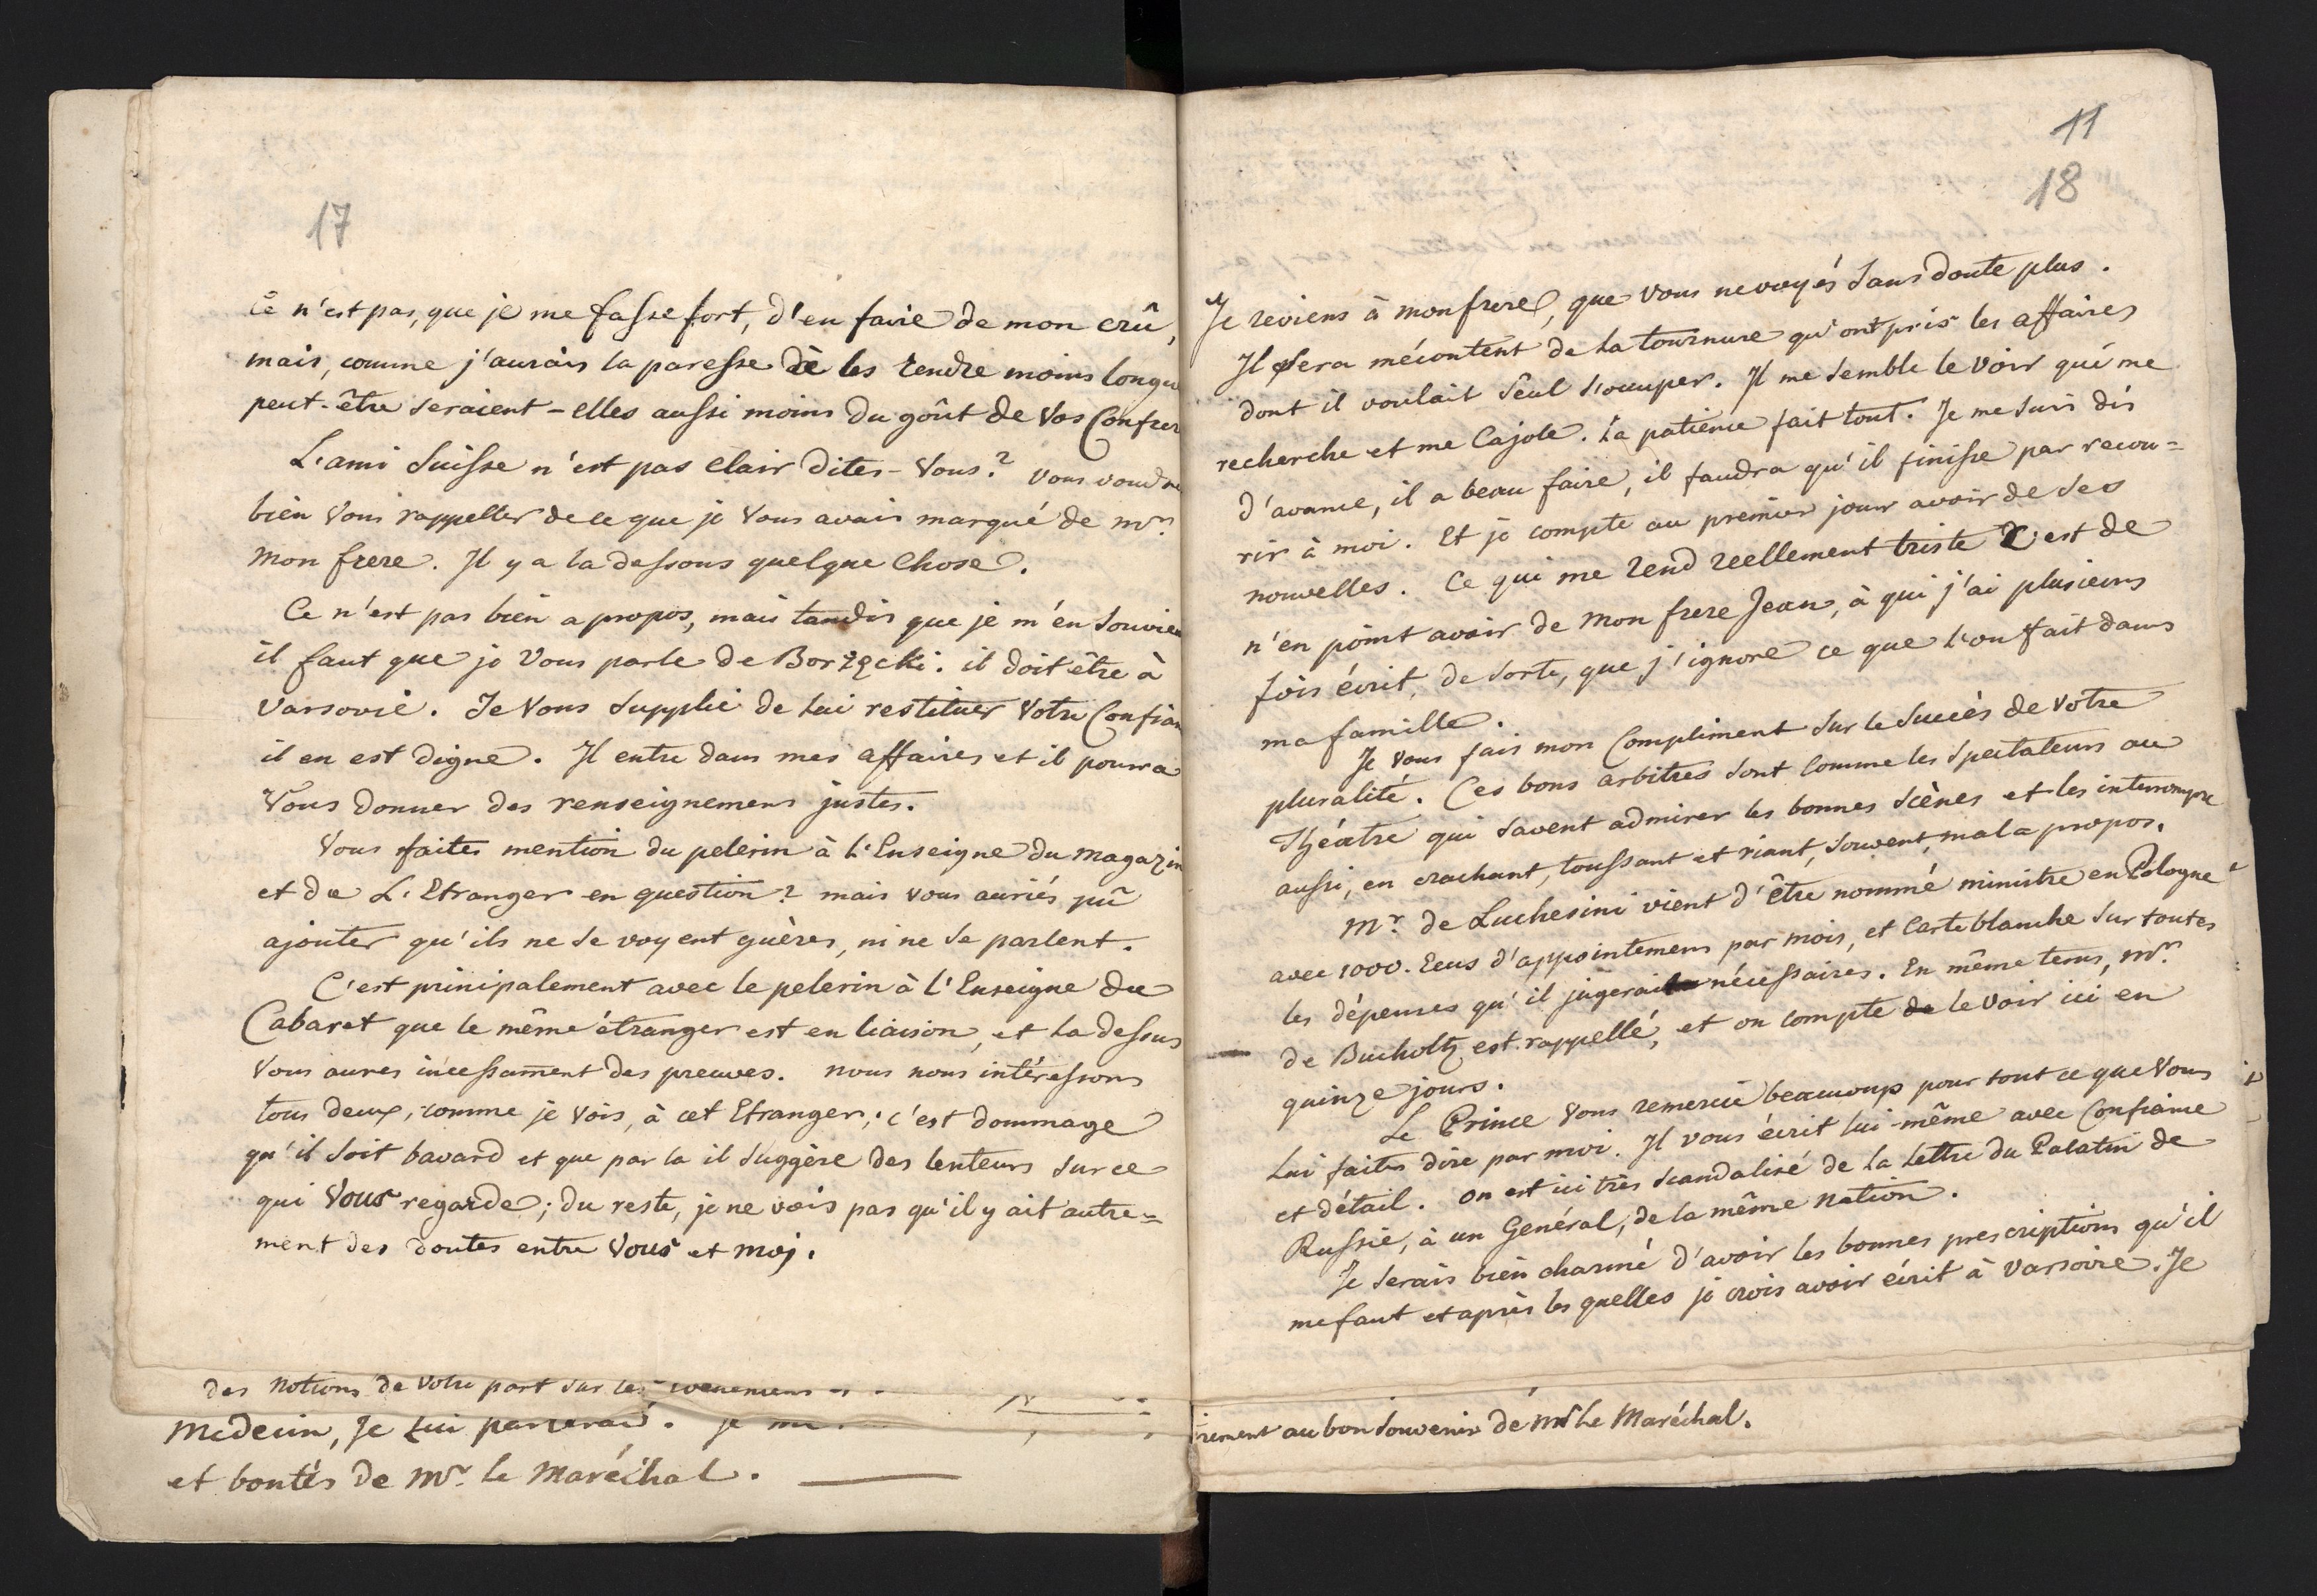 17
Ce n'est pas, que je me fasse fort, d'en faire de mon crû,
mais, comme j'aurais la paresse de les rendre moins
peut-être seraient-elles aussi moins du goût de vos
L'ami Suisse n'est pas clair dites-vous? vous
bien vous rappeller de ce que je vous avais marqué de Mr.
mon frere. Il y a la dessous quelque chose.
Ce n'est pas bien apropos, mais tandis que je m'en
il faut que je vous parle de Borzęcki. il doit être à
Varsovie. Je vous supplie de lui restituer votre
il en est digne. Il entre dans mes affaires et il pourra
vous donner des renseignemens justes.
Vous faites mention du pelerin à l'Enseigne du magazin
et de L'Etranger en question? mais vous auriés pû
ajouter qu'ils ne se voyent guères, ni ne se parlent.
C'est principalement avec le pelerin à l'Enseigne du
Cabaret que le même étranger est en liaison, et la dessus
vous aures incessament des preuves. nous nous intéressons
tous deux, comme je vois, à cet Etranger; c'est dommage
qu'il soit bavard et que par la il suggère des lenteurs sur ce
qui vous regarde; du reste, je ne vois pas qu'il y ait autre=
ment des doutes entre vous et moi.
des notions de votre part sur les
Medecin, Je lui
et bontés de Mr. le Maréchal.
11
18
Je reviens à mon frere, que vous ne voyés sans doute plus.
Il sera mécontent de la tournure qu'ont pris les affaires
dont il voulait seul s'occuper. Il me semble le voir qui me
recherche et me cajole. la patience fait tout. Je me suis dis
d'avance, il a beau faire, il faudra qu'il finisse par recou=
rir à moi. Et je compte au premier jour avoir de ses
nouvelles. Ce qui me rend reellement triste c'est de
n'en point avoir de mon frere Jean, à qui j'ai plusieurs
fois écrit, de sorte, que j'ignore ce que l'on fait dans
ma famille.
Je vous fais mon compliment sur le succès de votre
pluralité. Ces bons arbitres sont comme les spectateurs au
Théatre qui savent admirer les bonnes scènes et les interrompre
aussi, en crachant, toussant et riant, souvent, mal a propos.
Mr. de Luchesini vient d'être nommé ministre en Pologne
avec 1000. Ecus d'appointemens par mois, et Carte blanche sur toutes
les dépenses qu'il jugerait nécessaires. En même tems, Mr.
de Bucholtz est rappellé, et on compte de le voir ici en
quinze jours.
Le Prince vous remercie beaucoup pour tout ce que vous
lui faites dire par moi. Il vous écrit lui-même avec confiance
et détail. on est ici très scandalisé de la lettre du Palatin de
Russie, à un Genéral, de la même nation.
Je serais bien charmé d'avoir les bonnes prescriptions qu'il
me faut et après les quelles je crois avoir écrit à Varsovie. Je
au bon souvenir de Mr. le Maréchal.